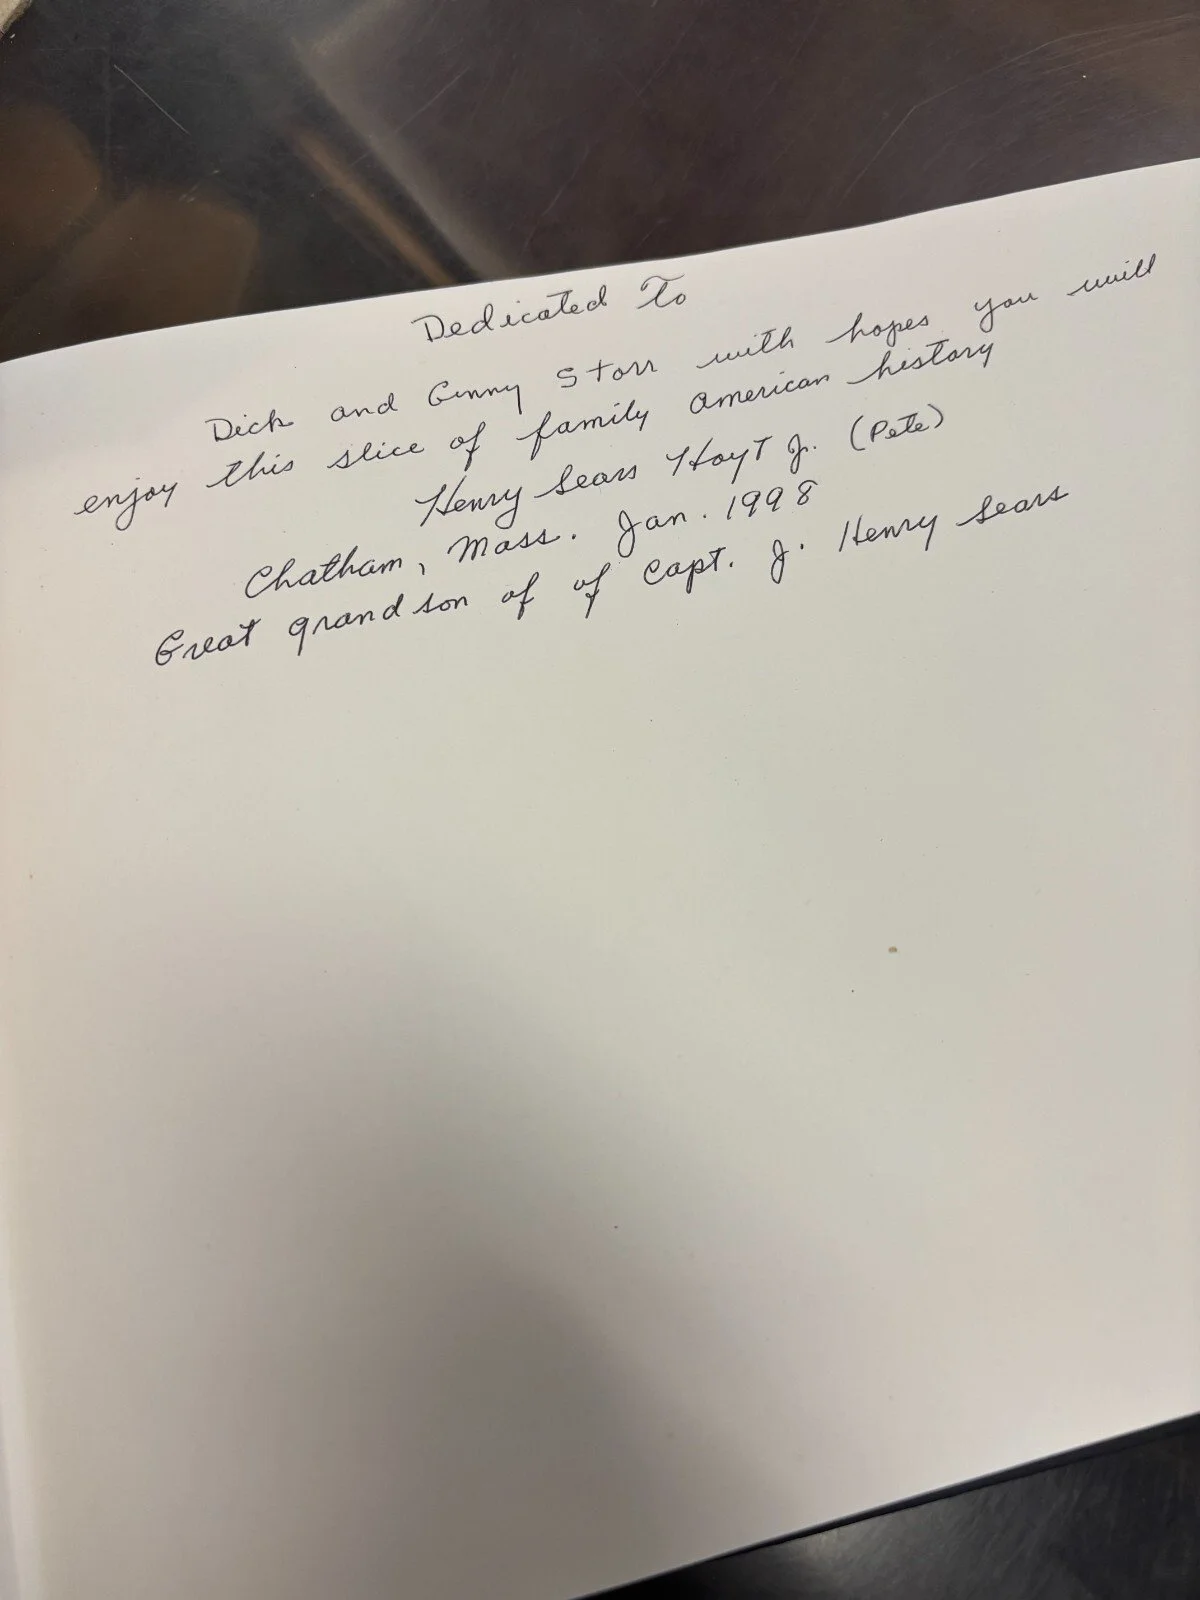 Dedicated To
Dick and Ginny Storr with hopes you will
enjoy this slice of family american history
Henry Sears Hoyt Jr. (Pete)
Chatham, Mass. Jan. 1998
Great grandson of of Capt. J. Henry Sears